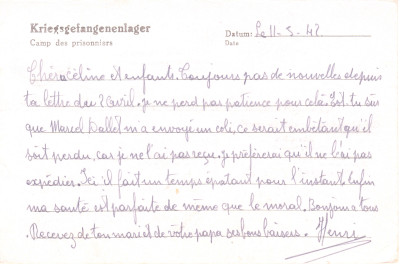 Kriegsgefangenenlager
Camp des prisonniers
Datum: Le 11-5-42
Date
Chère Céline et enfants. Toujours pas de nouvelles depuis
ta lettre du 2 avril. je ne perd pas patience pour celà. Est-tu sûr
que Marcel Dallet m'a envoyé un coli, ce serait embêtant qu'il
soit perdu, car je ne l'ai pas reçu. je préfèrerai qu'il ne l'ai pas
expédier. Ici il fait un temps épatant pour l'instant. Enfin
ma santé est parfaite de même que le moral. Bonjour a tous
Recevez de ton mari et de votre papa ses bons baisers. Henri